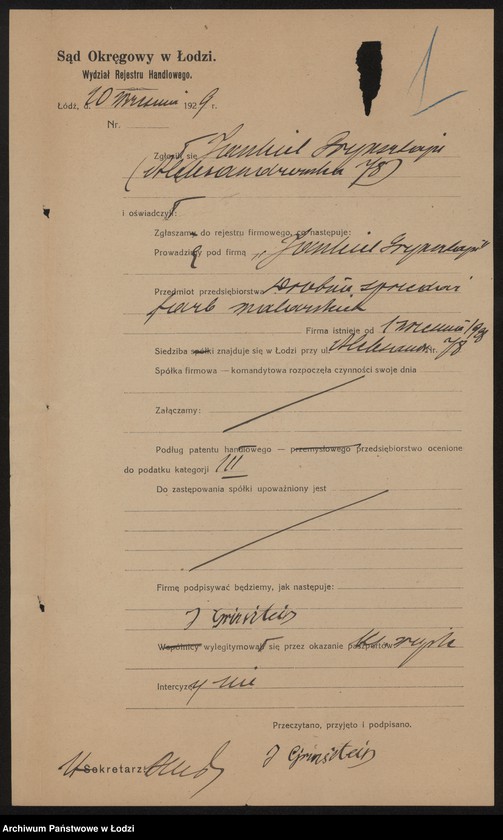 Sąd Okręgowy w Łodzi.
Wydział Rejestru Handlowego.
1
Łódź, d. 20 września 1929 r.
Nr.
Zgłosił się Jankiel
(Aleksandrowska 78)
i oświadczył:
Zgłaszam do rejestru firmowego, co następuje:
Prowadzę pod firmą „Jankiel
Przedmiot przedsiębiorstwa drobna sprzedaż
farb malarskich
Firma istnieje od 1 września
Siedziba spółki znajduje się w Łodzi przy ul. Nr. 78
Spółka firmowa — komandytowa rozpoczęła czynności swoje dnia
Załączamy:
Podług patentu handlowego — przemysłowego przedsiębiorstwo ocenione
do podatku kategorji III
Do zastępowania spółki upoważniony jest
Firmę podpisywać będziemy, jak następuje:
J Grinsztein
Wspólnicy wylegitymował się przez okazanie paszportów
Intercyzy nie
Przeczytano, przyjęto i podpisano.
J Grinsztein
Sekretarz:
Archiwum Państwowe w Łodzi